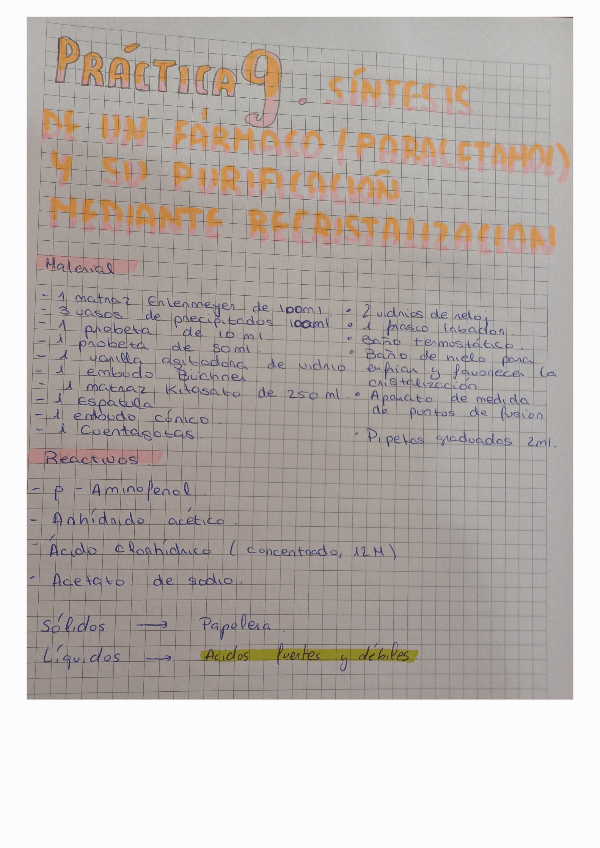 PRÁCTICA 9. SÍNTESIS
DE UN FÁRMACO (PARACETAMOL)
Y SU PURIFICACIÓN
MEDIANTE RECRISTALIZACION
Material
- 1 matraz Erlenmeyer de 100ml
- 3 vasos de precipitados 100ml
- 1 probeta de 10 ml
- 1 probeta de 50ml
- 1 varilla agitadora de vidrio
- 1 embudo Büchner
- 1 matraz Kitasato de 250 ml
- 1 Espatula
- 1 embudo cónico
- 1 Cuentagotas
• 2 vidrios de reloj
• 1 frasco labador
• Baño termostático.
• Baño de hielo para
enfriar y favorecer la
cristalización
• Aparato de medida
de puntos de fusion
• Pipetas graduadas 2ml.
Reactivos
- p-Aminofenol
- Anhídrido acético
- Ácido clorhídrico (concentrado, 12M)
- Acetato de sodio.
Sólidos → Papelera
Líquidos → Acidos fuertes y débiles